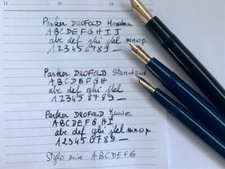 Parker DUOFOLD Maxima
ABCDEFGHIJ
abc def ghi jkl mnop
123456789
Parker DUOFOLD Standard
ABCDEFGH
abc def ghi jkl mnop
123456789
Parker DUOFOLD Junior
ABCDEFGHI
abc def ghi jkl mnop
1234567890
Stylo mine ABCDEFG